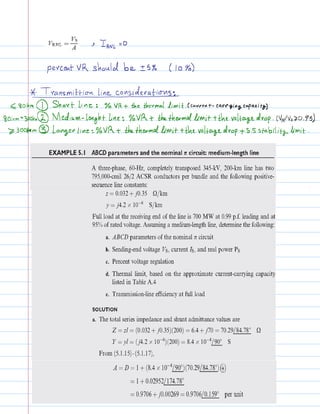 V_RNL = V_S / A , I_RNL = 0
percent VR should be ±5% (10%)
* Transmition line considerations:
≤80km ① Short line: % VR + the thermal limit. (current-carrying capacity)
80km-300km ② Medium-lenght line: %VR + the thermal limit + the voltage drop. (VR/VS ≥ 0.95)
≥300km ③ Longer line: %VR + the thermal limit + the voltage drop + S.S stability limit
EXAMPLE 5.1 ABCD parameters and the nominal π circuit: medium-length line
A three-phase, 60-Hz, completely transposed 345-kV, 200-km line has two
795,000-cmil 26/2 ACSR conductors per bundle and the following positive-
sequence line constants:
z = 0.032 + j0.35 Ω/km
y = j4.2 × 10⁻⁶ S/km
Full load at the receiving end of the line is 700 MW at 0.99 p.f. leading and at
95% of rated voltage. Assuming a medium-length line, determine the following:
a. ABCD parameters of the nominal π circuit
b. Sending-end voltage V_S, current I_S, and real power P_S
c. Percent voltage regulation
d. Thermal limit, based on the approximate current-carrying capacity
listed in Table A.4
e. Transmission-line efficiency at full load
SOLUTION
a. The total series impedance and shunt admittance values are
Z = zl = (0.032 + j0.35)(200) = 6.4 + j70 = 70.29/84.78° Ω
Y = yl = (j4.2 × 10⁻⁶)(200) = 8.4 × 10⁻⁴/90° S
From (5.1.15)–(5.1.17),
A = D = 1 + (8.4 × 10⁻⁴/90°)(70.29/84.78°)(½)
= 1 + 0.02952/174.78°
= 0.9706 + j0.00269 = 0.9706/0.159° per unit